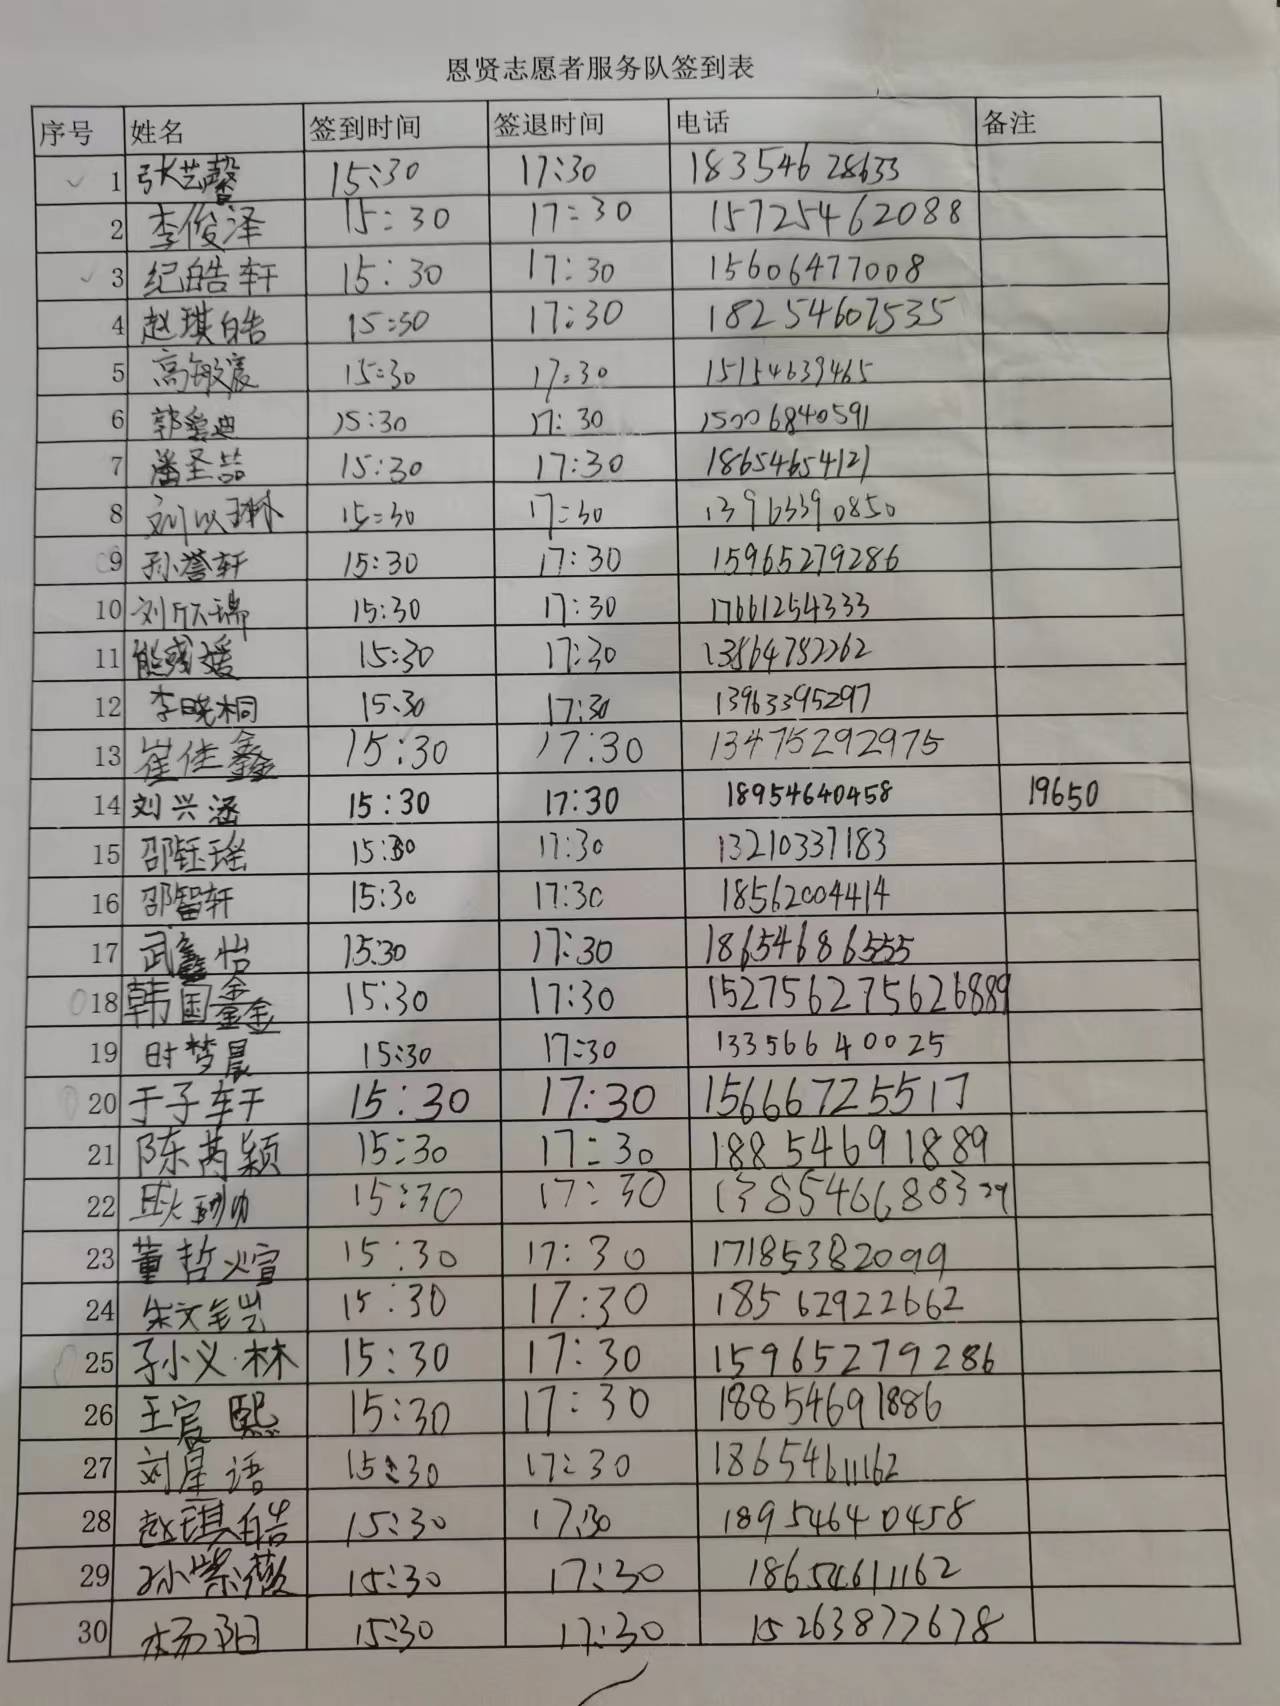 恩贤志愿者服务队签到表
序号 姓名 签到时间 签退时间 电话 备注
1 张艺馨 15:30 17:30 18354628633
2 李俊泽 15:30 17:30 15725462088
3 纪皓轩 15:30 17:30 15606477008
4 赵琪皓 15:30 17:30 18254607535
5 高敏宸 15:30 17:30 15154639465
6 郭爱迪 15:30 17:30 15006840591
7 潘圣喆 15:30 17:30 18654654121
8 刘以琳 15:30 17:30 13963390850
9 孙誉轩 15:30 17:30 15965279286
10 刘欣瑞 15:30 17:30 17661254333
11 15:30 17:30 13864782262
12 李晓桐 15:30 17:30 13963395297
13 崔佳鑫 15:30 17:30 13475292975
14 刘兴涵 15:30 17:30 18954640458 19650
15 邵钰瑶 15:30 17:30 13210337183
16 邵智轩 15:30 17:30 18562004414
17 武鑫怡 15:30 17:30 18654686555
18 韩国鑫 15:30 17:30 152756275626889
19 时梦晨 15:30 17:30 13356640025
20 于子轩 15:30 17:30 15666725517
21 陈苒颖 15:30 17:30 18854691889
22 15:30 17:30
23 董哲煊 15:30 17:30 17185382099
24 朱文 15:30 17:30 18562922662
25 孙义林 15:30 17:30 15965279286
26 王宸熙 15:30 17:30 18854691886
27 刘星语 15:30 17:30 18654611162
28 赵琪皓 15:30 17:30 18954640458
29 孙紫薇 15:30 17:30 18654611162
30 杨阳 15:30 17:30 15263877678